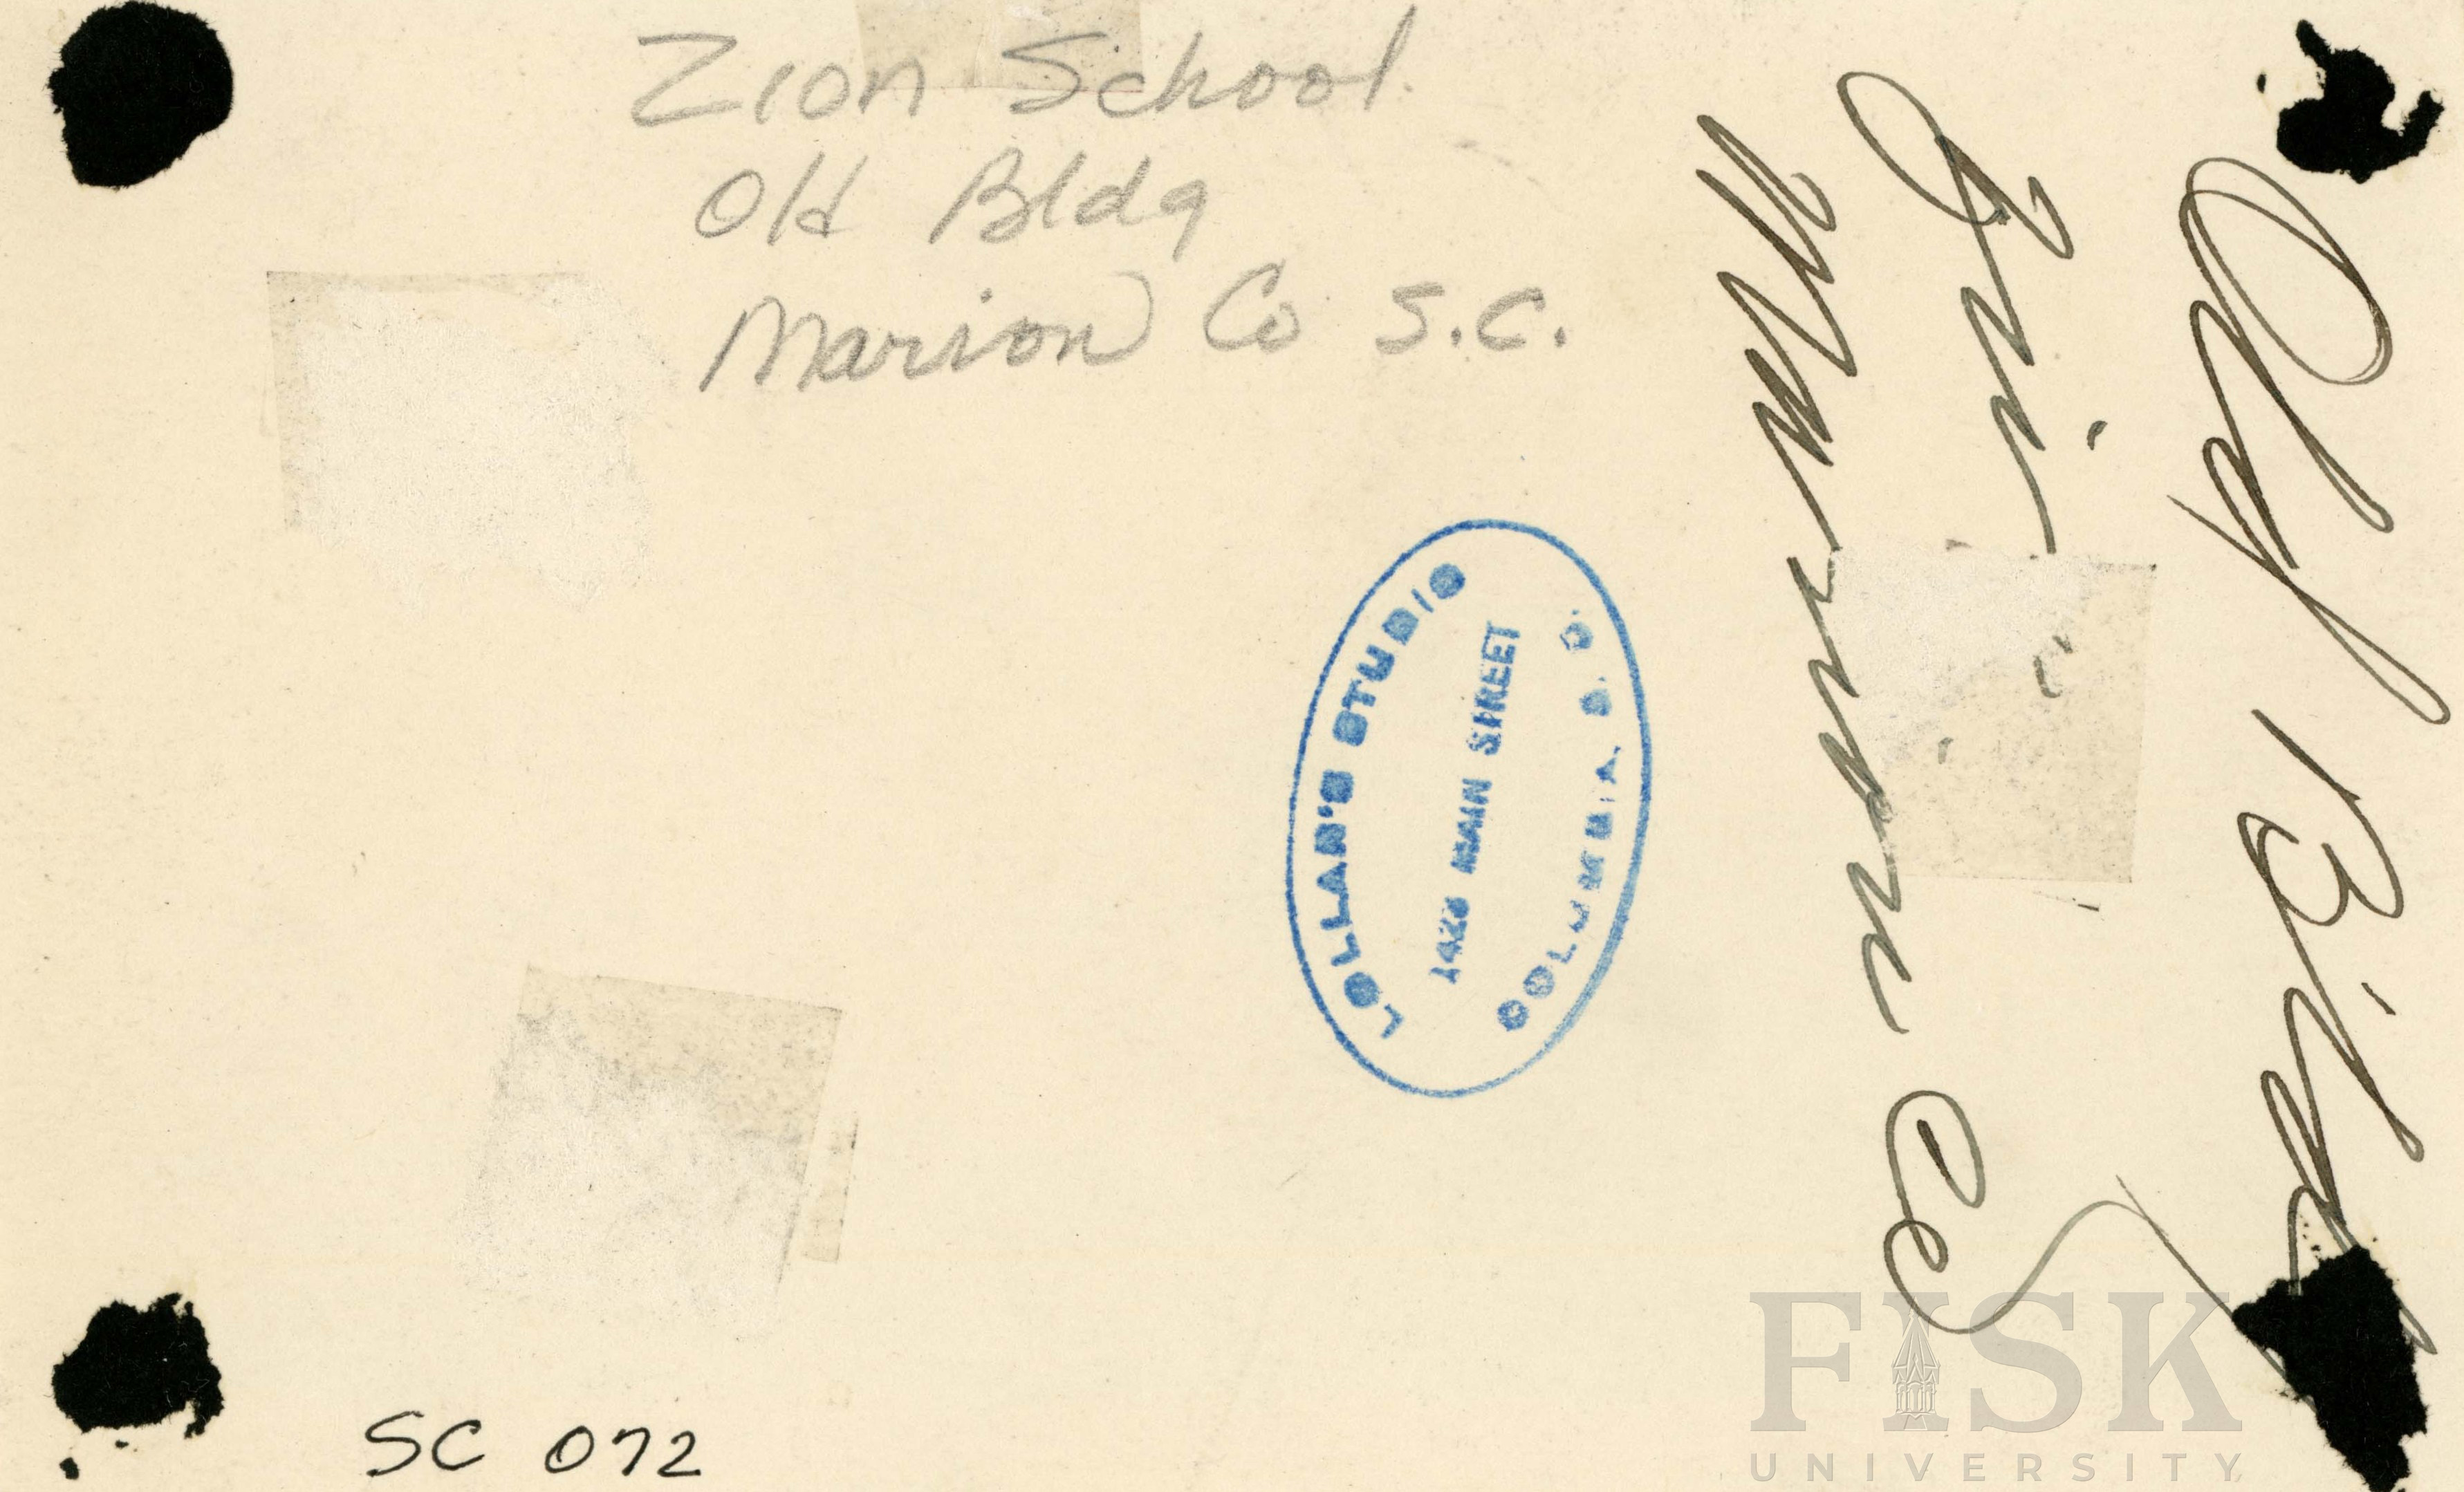 Zion School
Old Bldg
Marion Co S.C.
Old Bild
Marion Co
LOLLAR'S STUDIO
1423 MAIN STREET
COLUMBIA, S. C.
SC 072
FISK
UNIVERSITY